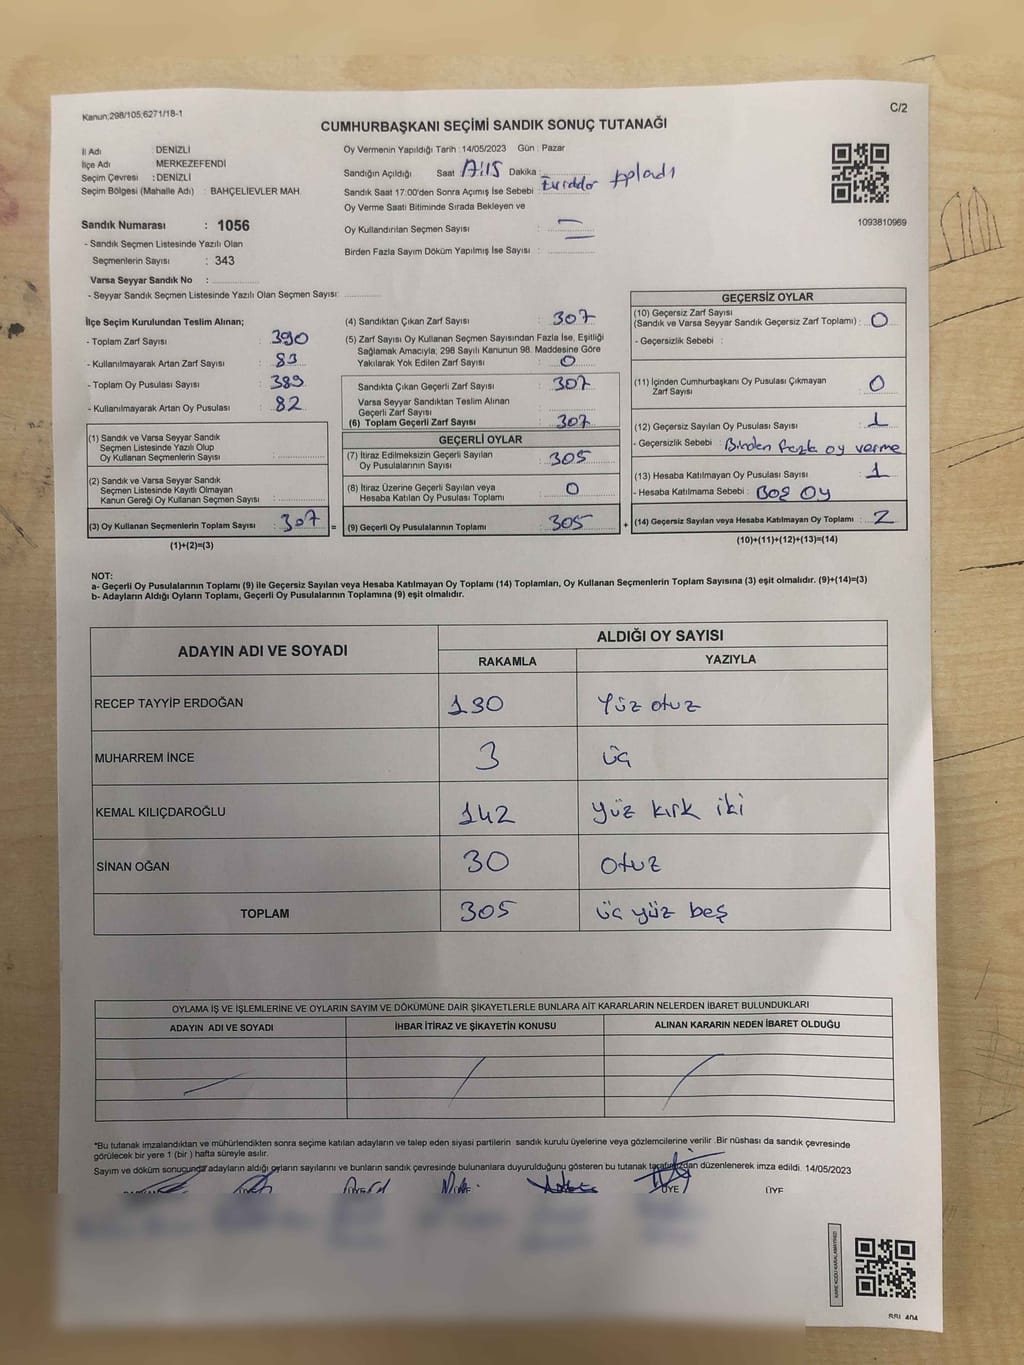 Kanun;298/105;6271/18-1
C/2
CUMHURBAŞKANI SEÇİMİ SANDIK SONUÇ TUTANAĞI
İl Adı : DENİZLİ
İlçe Adı : MERKEZEFENDİ
Seçim Çevresi : DENİZLİ
Seçim Bölgesi (Mahalle Adı) : BAHÇELİEVLER MAH.
Sandık Numarası : 1056
- Sandık Seçmen Listesinde Yazılı Olan
Seçmenlerin Sayısı : 343
Varsa Seyyar Sandık No :
- Seyyar Sandık Seçmen Listesinde Yazılı Olan Seçmen Sayısı:
Oy Vermenin Yapıldığı Tarih : 14/05/2023 Gün : Pazar
Sandığın Açıldığı Saat 17:15 Dakika :
Sandık Saat 17:00'den Sonra Açımış İse Sebebi :
Oy Verme Saati Bitiminde Sırada Bekleyen ve
Oy Kullandırılan Seçmen Sayısı :
Birden Fazla Sayım Döküm Yapılmış İse Sayısı :
1093810969
İlçe Seçim Kurulundan Teslim Alınan;
- Toplam Zarf Sayısı : 390
- Kullanılmayarak Artan Zarf Sayısı : 83
- Toplam Oy Pusulası Sayısı : 389
- Kullanılmayarak Artan Oy Pusulası : 82
(1) Sandık ve Varsa Seyyar Sandık
Seçmen Listesinde Yazılı Olup
Oy Kullanan Seçmenlerin Sayısı :
(2) Sandık ve Varsa Seyyar Sandık
Seçmen Listesinde Kayıtlı Olmayan
Kanun Gereği Oy Kullanan Seçmen Sayısı :
(3) Oy Kullanan Seçmenlerin Toplam Sayısı : 307 =
(1)+(2)=(3)
(4) Sandıktan Çıkan Zarf Sayısı : 307
(5) Zarf Sayısı Oy Kullanan Seçmen Sayısından Fazla İse, Eşitliği
Sağlamak Amacıyla; 298 Sayılı Kanunun 98. Maddesine Göre
Yakılarak Yok Edilen Zarf Sayısı : 0
Sandıkta Çıkan Geçerli Zarf Sayısı : 307
Varsa Seyyar Sandıktan Teslim Alınan
Geçerli Zarf Sayısı :
(6) Toplam Geçerli Zarf Sayısı : 307
GEÇERLİ OYLAR
(7) İtiraz Edilmeksizin Geçerli Sayılan
Oy Pusulalarının Sayısı : 305
(8) İtiraz Üzerine Geçerli Sayılan veya
Hesaba Katılan Oy Pusulası Toplamı : 0
(9) Geçerli Oy Pusulalarının Toplamı : 305 +
GEÇERSİZ OYLAR
(10) Geçersiz Zarf Sayısı
(Sandık ve Varsa Seyyar Sandık Geçersiz Zarf Toplamı) : 0
- Geçersizlik Sebebi :
(11) İçinden Cumhurbaşkanı Oy Pusulası Çıkmayan
Zarf Sayısı : 0
(12) Geçersiz Sayılan Oy Pusulası Sayısı : 1
- Geçersizlik Sebebi : Birden fazla oy verme
(13) Hesaba Katılmayan Oy Pusulası Sayısı : 1
- Hesaba Katılmama Sebebi : Boş Oy
(14) Geçersiz Sayılan veya Hesaba Katılmayan Oy Toplamı : 2
(10)+(11)+(12)+(13)=(14)
NOT:
a- Geçerli Oy Pusulalarının Toplamı (9) ile Geçersiz Sayılan veya Hesaba Katılmayan Oy Toplamı (14) Toplamları, Oy Kullanan Seçmenlerin Toplam Sayısına (3) eşit olmalıdır. (9)+(14)=(3)
b- Adayların Aldığı Oyların Toplamı, Geçerli Oy Pusulalarının Toplamına (9) eşit olmalıdır.
ADAYIN ADI VE SOYADI
ALDIĞI OY SAYISI
RAKAMLA YAZIYLA
RECEP TAYYİP ERDOĞAN 130 Yüz otuz
MUHARREM İNCE 3 üç
KEMAL KILIÇDAROĞLU 142 yüz kırk iki
SİNAN OĞAN 30 otuz
TOPLAM 305 üç yüz beş
OYLAMA İŞ VE İŞLEMLERİNE VE OYLARIN SAYIM VE DÖKÜMÜNE DAİR ŞİKAYETLERLE BUNLARA AİT KARARLARIN NELERDEN İBARET BULUNDUKLARI
ADAYIN ADI VE SOYADI İHBAR İTİRAZ VE ŞİKAYETİN KONUSU ALINAN KARARIN NEDEN İBARET OLDUĞU
*Bu tutanak imzalandıktan ve mühürlendikten sonra seçime katılan adayların ve talep eden siyasi partilerin sandık kurulu üyelerine veya gözlemcilerine verilir .Bir nüshası da sandık çevresinde
görülecek bir yere 1 (bir ) hafta süreyle asılır.
Sayım ve döküm sonucunda adayların aldığı oyların sayılarını ve bunların sandık çevresinde bulunanlara duyurulduğunu gösteren bu tutanak tarafımızdan düzenlenerek imza edildi. 14/05/2023
ÜYE ÜYE
KARE KODU KARALAMAYINIZ!